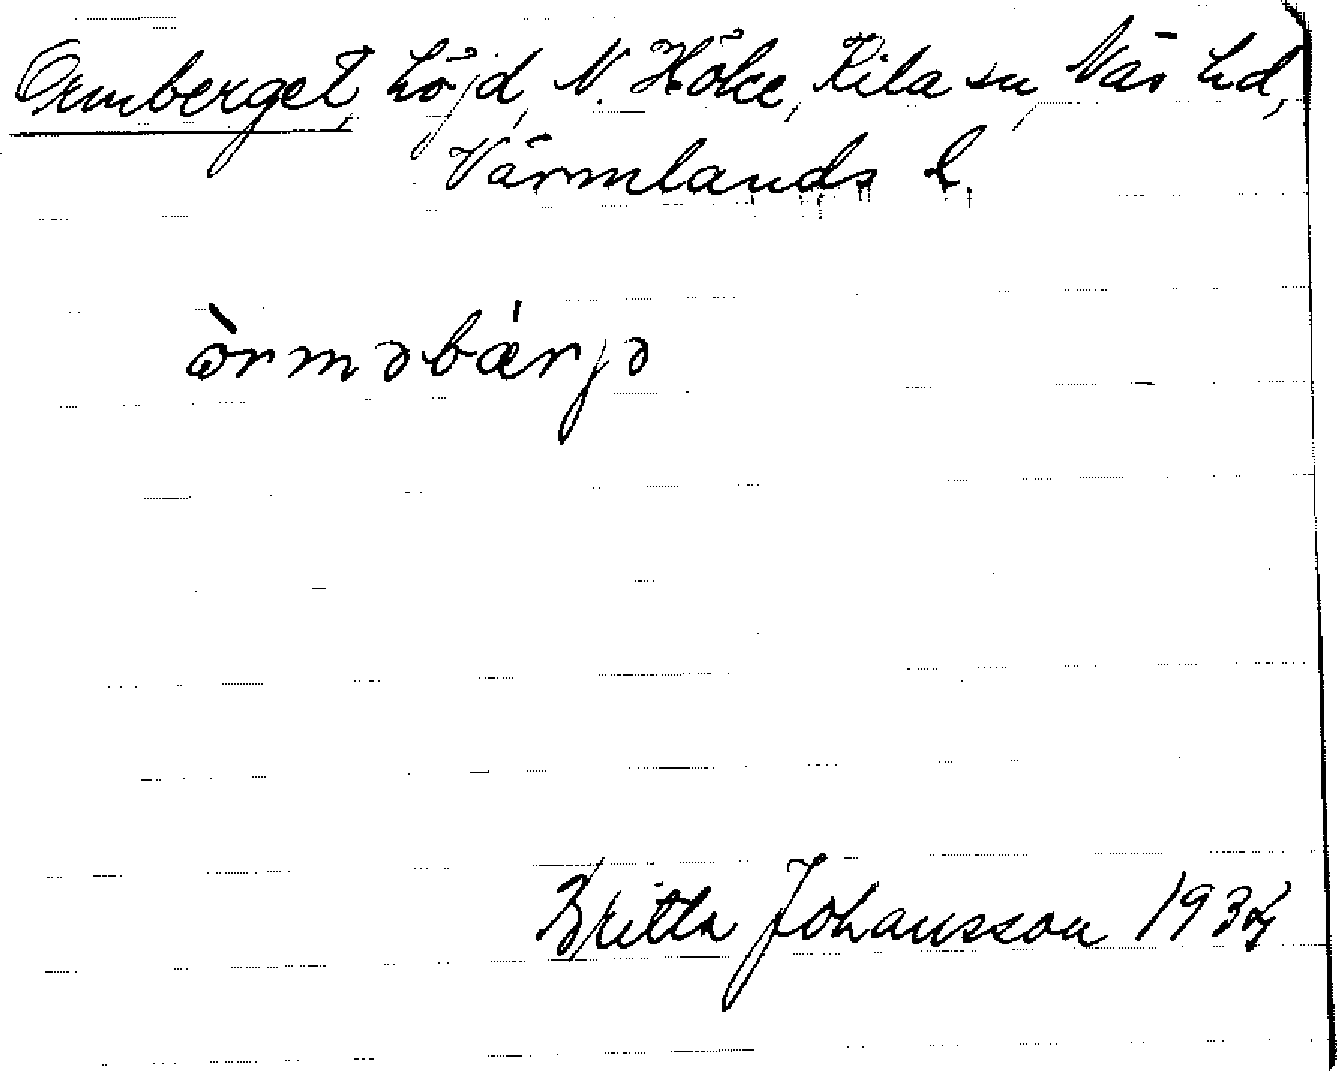 Ormberget, höjd, N. Höke, Kila sn, Näs hd,
Värmlands l.
òrməbǽrjə
Britta Johansson 1934